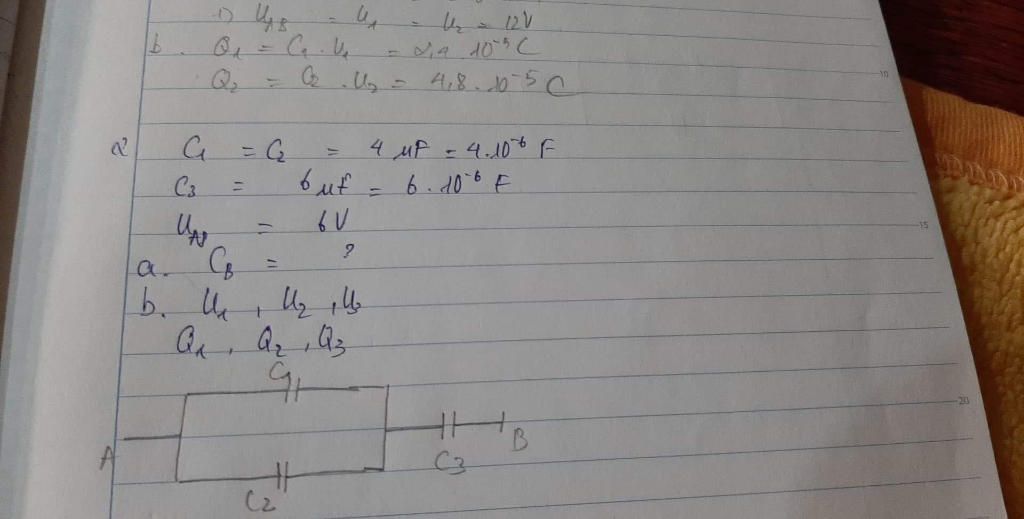 U_AB = U₁ = U₂ = 12V
b. Q₁ = C₁ . U₁ = 2,4 . 10⁻⁵ C
Q₂ = C₂ . U₂ = 4,8 . 10⁻⁵ C
2 C₁ = C₂ = 4 µF = 4.10⁻⁶ F
C₃ = 6 µF = 6 . 10⁻⁶ F
U_AB = 6V
a. C_B = ?
b. U₁ , U₂ , U₃
Q₁ , Q₂ , Q₃
C₁
A C₃ B
C₂
10
15
20